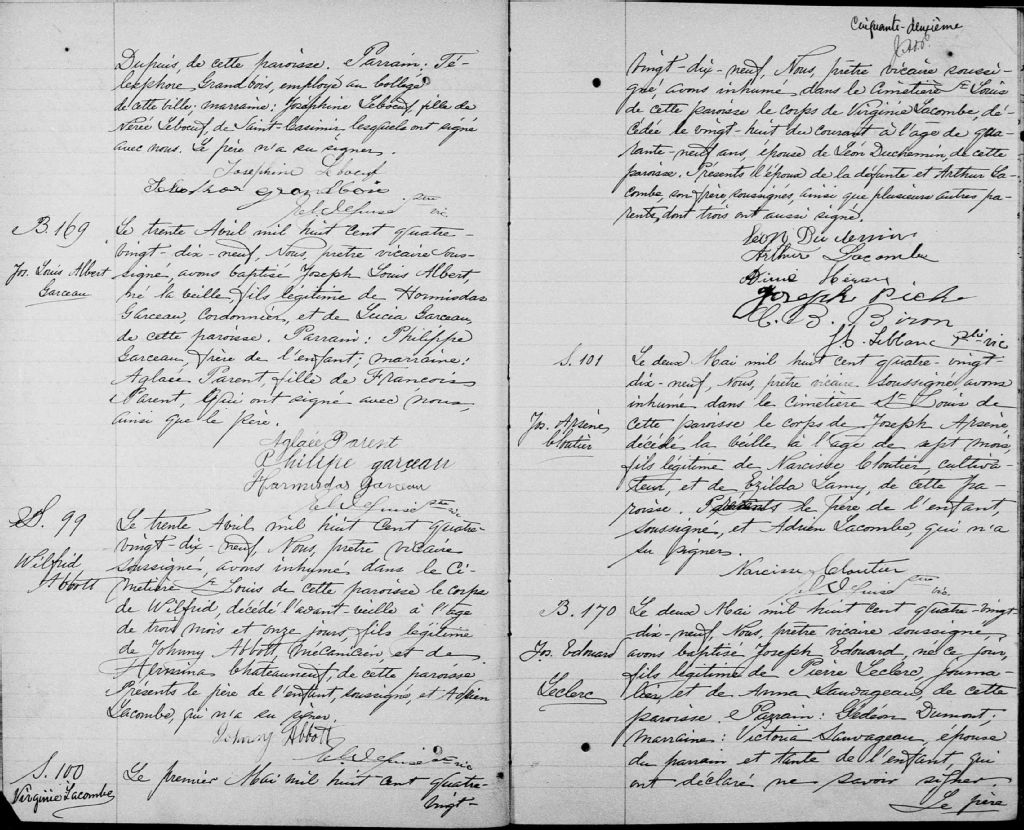 Dupuis, de cette paroisse. Parrain: Té-
lesphore Grandbois, employé au collège
de cette ville, marraine: Joséphine Leboeuf, fille de
Nérée Leboeuf, de Saint-Casimir, lesquels ont signé
avec nous. Le père n'a su signer.
Josephine Leboeuf
ptre vic.
B. 169
Jos. Louis Albert
Garceau
Le trente Avril mil huit cent quatre-
vingt-dix-neuf, Nous, prêtre vicaire sous-
signé, avons baptisé Joseph Louis Albert,
né la veille, fils légitime de Hormisdas
Garceau, Cordonnier, et de Lucia Garceau,
de cette paroisse. Parrain: Philippe
Garceau, frère de l'enfant; marraine:
Aglaée Parent, fille de François
Parent, Qui ont signé avec nous,
ainsi que le père.
Aglaée Parent
Philippe garceau
Harmisdas Garceau
ptre vic
S. 99
Wilfrid
Abbott
Le trente Avril mil huit cent quatre-
vingt-dix-neuf, Nous, prêtre vicaire
soussigné, avons inhumé dans le Ci-
metière St Louis de cette paroisse le corps
de Wilfrid, décédé l'avant-veille à l'age
de trois mois et onze jours, fils légitime
de Johnny Abbott, mécanicien, et de
Herssina Chateauneuf, de cette paroisse.
Présents le père de l'enfant, soussigné, et Adrien
Lacombe, qui n'a su signer.
Johnny Abbott
ptre vic
S. 100
Virginie Lacombe
Le premier Mai mil huit cent quatre-
vingt-
Cinquante-deuxième
vingt-dix-neuf, Nous, prêtre vicaire soussi-
gné, avons inhumé dans le Cimetière St Louis
de cette paroisse le corps de Virginie Lacombe, dé-
cédée le vingt-huit du courant à l'age de qua-
rante-neuf ans, épouse de Léon Duchemin, de cette
paroisse. Présents l'époux de la défunte et Arthur La-
combe, son frère, soussignés, ainsi que plusieurs autres pa-
rents, dont trois ont aussi signé.
Léon Duchemin
Arthur Lacombe
Joseph Piché
C. B. Biron
J. D. Leblanc Ptre vic
S. 101
Jos. Arsène
Cloutier
Le deux Mai mil huit cent quatre-vingt-
dix-neuf, Nous, prêtre vicaire soussigné, avons
inhumé dans le Cimetière St Louis de
cette paroisse le corps de Joseph Arsène,
décédé la veille à l'age de sept mois,
fils légitime de Narcisse Cloutier, cultiva-
teur, et de Ezilda Lamy, de cette pa-
roisse. Présents le père de l'enfant,
soussigné, et Adrien Lacombe, qui n'a
su signer.
Narcisse Cloutier
ptre vic.
B. 170
Jos. Edouard
Leclerc
Le deux Mai mil huit cent quatre-vingt-
dix-neuf, Nous, prêtre vicaire soussigné,
avons baptisé Joseph Edouard, né ce jour,
fils légitime de Pierre Leclerc, journa-
lier, et de Anna Sauvageau, de cette
paroisse. Parrain: Gédéon Dumont;
marraine: Victoria Sauvageau, épouse
du parrain et tante de l'enfant, qui
ont déclaré ne savoir signer.
Le père